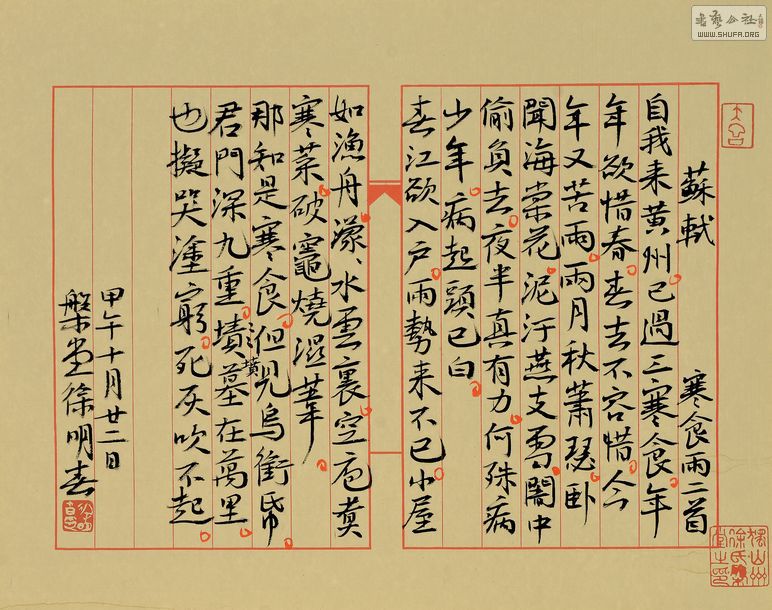 書藝公社
WWW.SHUFA.ORG
蘇軾 寒食雨二首
自我来黄州已過三寒食。年
年欲惜春。春去不容惜。今
年又苦雨。兩月秋蕭瑟。卧
聞海棠花。泥汙燕支雪。闇中
偷負去。夜半真有力。何殊病
少年。病起頭已白。
春江欲入户。雨勢来不已。小屋
如漁舟。濛、水雲裏。空庖煮
寒菜。破竈燒濕葦。
那知是寒食。但見烏銜帋。
君門深九重。墳墓在萬里。
也擬哭塗窮。死灰吹不起。
甲午十月廿二日
槃堂徐明春